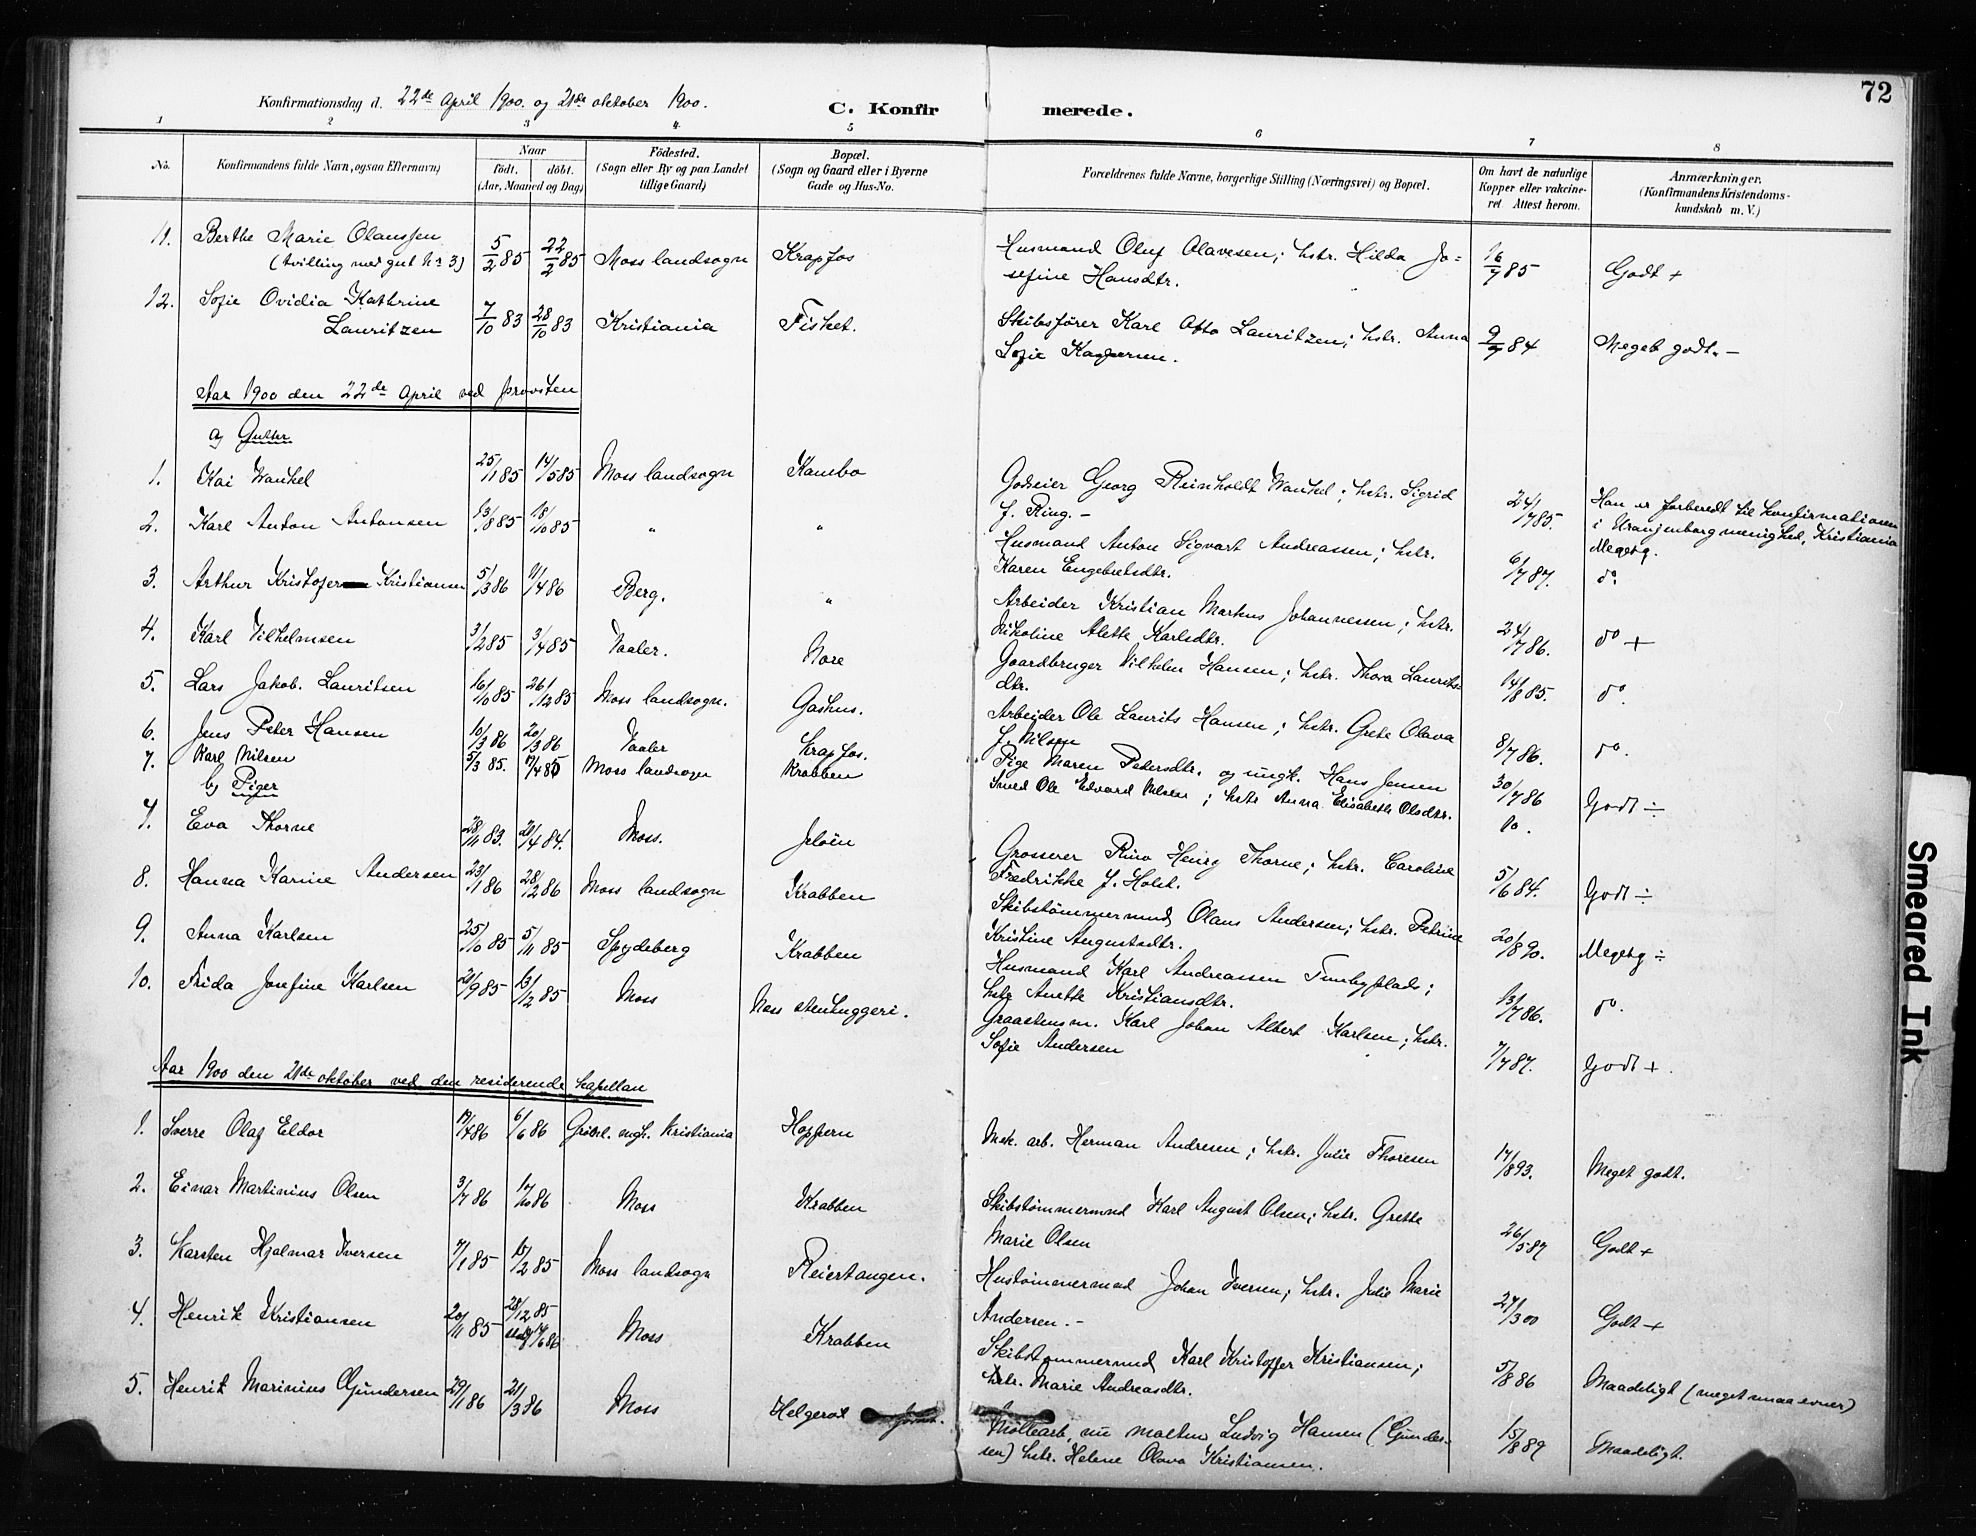 72
Konfirmationsdag d. 22de April 1900. og 21de oktober 1900.
C. Konfirmerede.
1 2 3 4 5 6 7 8
No.
Konfirmandens fulde Navn, ogsaa Efternavn)
Naar
födt. döbt.
(Aar, Maaned og Dag)
Födested.
(Sogn eller By og paa Landet
tillige Gaard)
Bopæl.
(Sogn og Gaard eller i Byerne
Gade og Hus-No.
Forældrenes fulde Navne, borgerlige Stilling (Næringsvei) og Bopæl.
Om havt de naturlige
Kopper eller vakcine-
ret. Attest herom.
Anmærkninger.
(Konfirmandens Kristendoms-
kundskab m. V.)
11. Berthe Marie Olanssen 5/2 85 22/2 85 Moss landsogn Krapfos Husmand Oluf Olavesen; hstr. Hilda Jo= 16/7 85 Godt +
(tvilling med gut No 3) sefine Hansdtr.
12. Sofie Ovidia Kathrine Lauritzen 7/10 83 28/10 83 Kristiania Fisket. Skibsfører Karl Otto Lauritzen; hstr. Anna 9/7 84 Meget godt. –
Sofie Kaspersen.
Aar 1900 den 22de April ved provsten
a) Gutter
1. Kai Wankel 25/1 85 14/5 85 Moss landsogn Kambo Godseier Georg Reinholdt Wankel; hstr. Sigrid 24/7 85. Han er forberedt til konfirmationen
f. Ring. – i Uranjenborg menighed, Kristiania
2. Karl Anton Antonsen 13/8 85 18/10 85 " " Husmand Anton Sigvart Andreassen; hstr. 6/7 87. Megetg.
Karen Engebretsdtr. do.
3. Arthur Kristofer Kristiansen 5/3 86 11/4 86 Berg. " Arbeider Kristian Markus Johannessen; hstr. 24/7 86. do +
Nikoline Alette Karlsdtr.
4. Karl Vilhelmsen 3/2 85 3/4 85 Vaaler. Nore Gaardbruger Vilhelm Hansen; hstr. Thora Laurits- 14/8 85. do.
dtr.
5. Lars Jakob. Lauritsen 16/10 85 26/12 85 Moss landsogn. Gashus. Arbeider Ole Laurits Hansen; hstr. Grete Olava 8/7 86. do.
f. Nilsen
6. Jens Peter Hansen 10/3 86 20/3 86 Vaaler Krapfos. Pige Maren Pedersdtr. og ungk. Hans Jensen 30/7 86 Godt ÷
7. Karl Nilsen 5/3 85. 17/4 85 Moss landsogn Krabben Smed Ole Edvard Nilsen; hstr Anna Elisabeth Olsdtr.
b) Piger
7. Eva Thorne 28/11 83. 20/4 84. Moss. Jeløen Grosserer Rino Henry Thorne; hstr. Caroline 5/6 84. Godt ÷
Fredrikke f. Holst.
8. Hanna Karine Andersen 23/1 86 28/2 86 Moss landsogn Krabben Skibstømmermand Olaus Andersen; hstr. Petrine 20/8 90. Megetg ÷
Kristine Augustsdtr.
9. Anna Karlsen 25/10 85 5/11 85 Spydeberg Krabben Husmand Karl Andreassen 13/7 86. do.
hstr Anette Kristiansdtr.
10. Frida Josefine Karlsen 21/9 85 13/12 85 Moss Moss stenhuggeri. Graastensm. Karl Johan Albert Karlsen; hstr. 7/7 87. Godt +.
Sofie Andersen
Aar 1900 den 21de oktober ved den residerende kapellan
1. Sverre Olaf Eldor 17/4 86 6/6 86 Gribel. mgh. Kristiania Hoppern Mek. arb. Herman Andresen; hstr. Julie Thoresen 17/8 93. Meget godt.
2. Einar Martinius Olsen 3/7 86 17/10 86 Moss Krabben Skibstømmermand Karl August Olsen; hstr. Grette 26/5 87 Godt +
Marie Olsen
3. Karsten Hjalmar Iversen 7/1 85 15/2 85 Moss landsogn Reiertangen. Hustømmermand Johan Iversen; hstr. Julie Marie 27/3 00 Godt +
Andersen. –
4. Henrik Kristiansen 20/11 85 28/12 85 Moss Krabben Skibstømmermand Karl Kristoffer Kristiansen; 5/8 86 Maadeligt (meget smaa evner)
hstr. Marie Andreasdtr.
5. Henrik Marinius Gundersen 29/1 86 21/3 86 Moss Helgerød Møllearb, nu malten Ludvig Hansen (Gunder- 15/8 89 Maadeligt.
sen) hstr. Helene Olava Kristiansen.
Smeared Ink